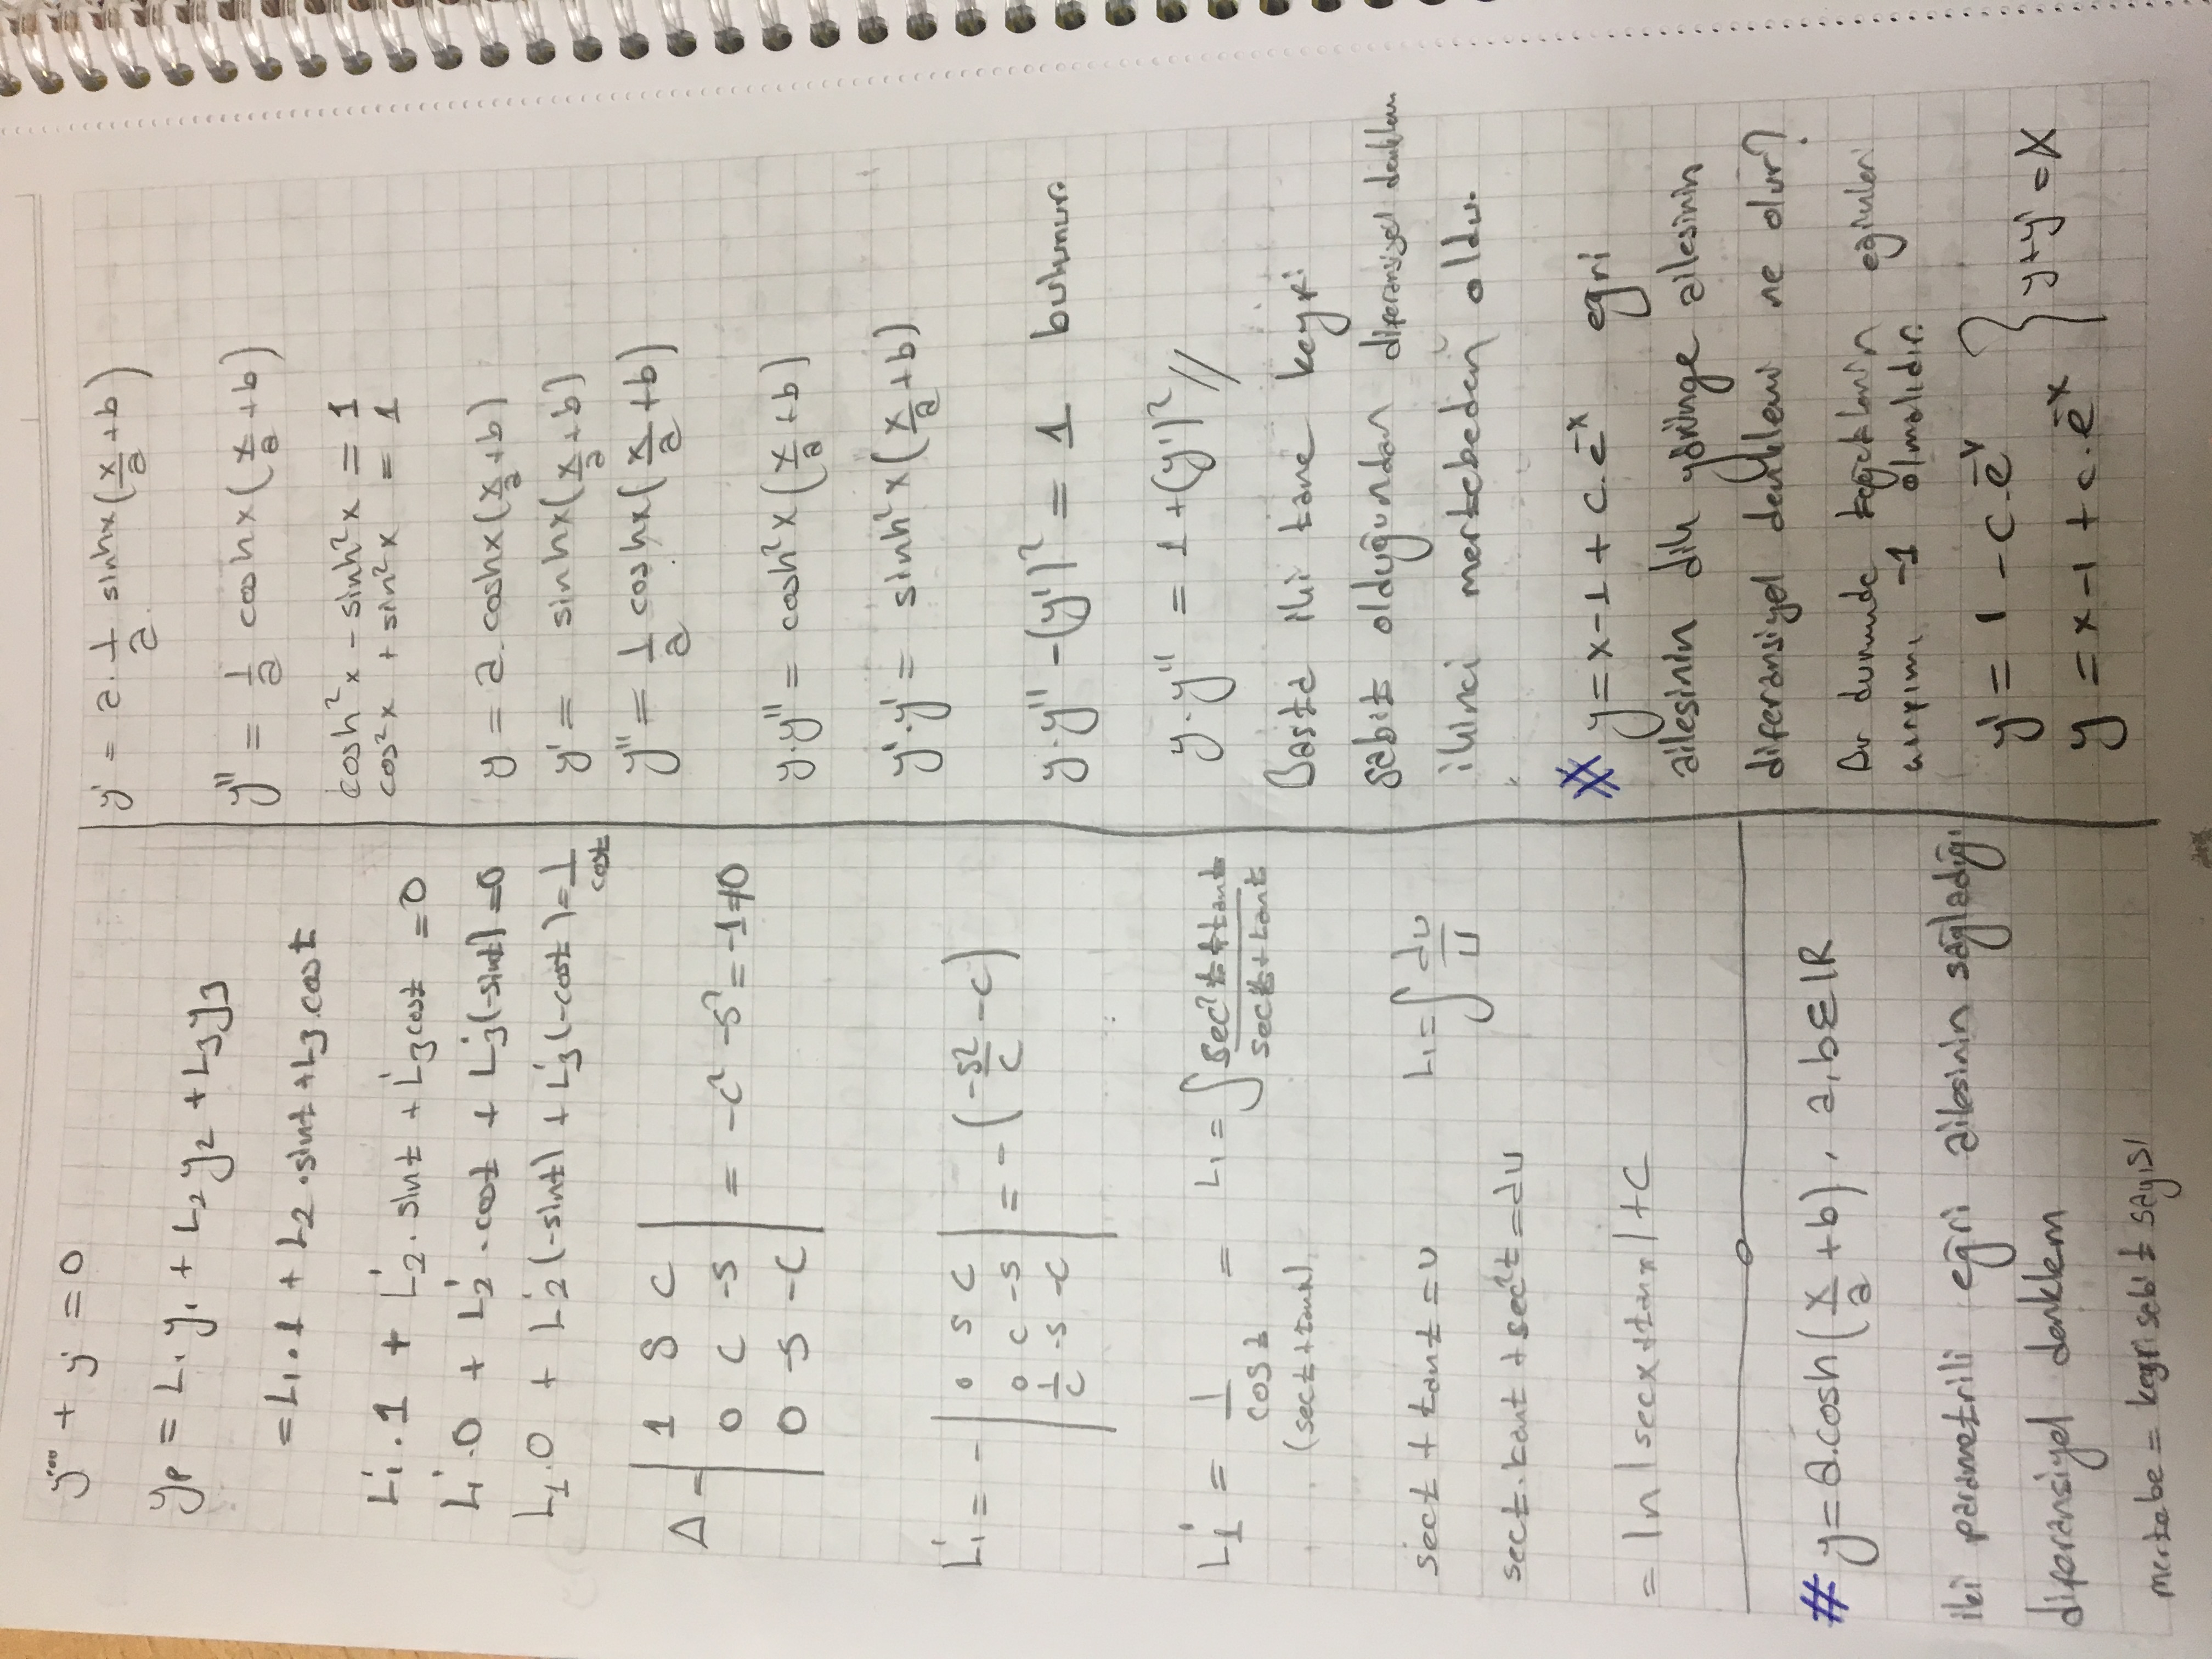 y''' + y' = 0
yp = L₁y₁ + L₂y₂ + L₃y₃
= L₁·1 + L₂·sint + L₃·cost
L₁'·1 + L₂'·sint + L₃'cost = 0
L₁'·0 + L₂'·cost + L₃'(-sint) = 0
L₁·0 + L₂'(-sint) + L₃'(-cost) = 1/cost
Δ = | 1 S C |
| 0 C -S | = -C² -S² = -1 ≠ 0
| 0 -S -C |
L₁' = - | 0 S C |
| 0 C -S | = - (-S²/C - C)
| 1/C -S -C |
L₁' = 1/cost = L₁ = ∫ sec²t + tant / sect + tant
(sect + tanx)
sect + tant = u L₁ = ∫ du/u
sect·tant + sec²t = du
= ln|secx + tanx| + C
# y = a.cosh(x/a + b), a,b ∈ IR
iki parametrili eğri ailesinin sağladığı
diferansiyel denklem
mertebe = keyri sabit sayısı
y' = a·1/a sinhx(x/a + b)
y'' = 1/a coshx(x/a + b)
cosh²x - sinh²x = 1
cos²x + sin²x = 1
y = a.coshx(x/a + b)
y' = sinhx(x/a + b)
y'' = 1/a coshx(x/a + b)
y·y'' = cosh²x(x/a + b)
y'·y' = sinh²x(x/a + b)
y·y'' - (y')² = 1 bulunur.
y·y'' = 1 + (y')² //
Başta iki tane keyfi
sabit olduğundan diferansiyel denklem
ikinci mertebeden oldu.
# y = x-1 + c.e^-x egri
ailesinin dik yörünge ailesinin
diferansiyel denklemi ne olur?
Bu durumda teğetlerin eğimleri
çarpımı -1 olmalıdır.
y' = 1 - c.e^-x
y = x-1 + c.e^-x } y+y' = x